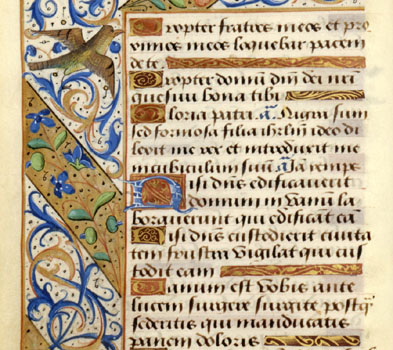 Propter fratres meos et pro
ximos meos loquebar pacem
de te.
Propter domũ dñi dei nrĩ
quesivi bona tibi.
Gloria patri. añ. Nigra sum
sed formosa filia ihrlm̃ ideo di
lexit me rex et introduxit me
in cubiculum suũ. añ. Iam
Nisi dñs edificaverit
domum in vanũ la
boraverunt qui edificãt eã
Nisi dñs custodierit civita
tem frustra vigilat qui cus
todit eam
Vanum est vobis ante
lucem surgere surgite postq̃
sederitis qui manducatis
panem doloris